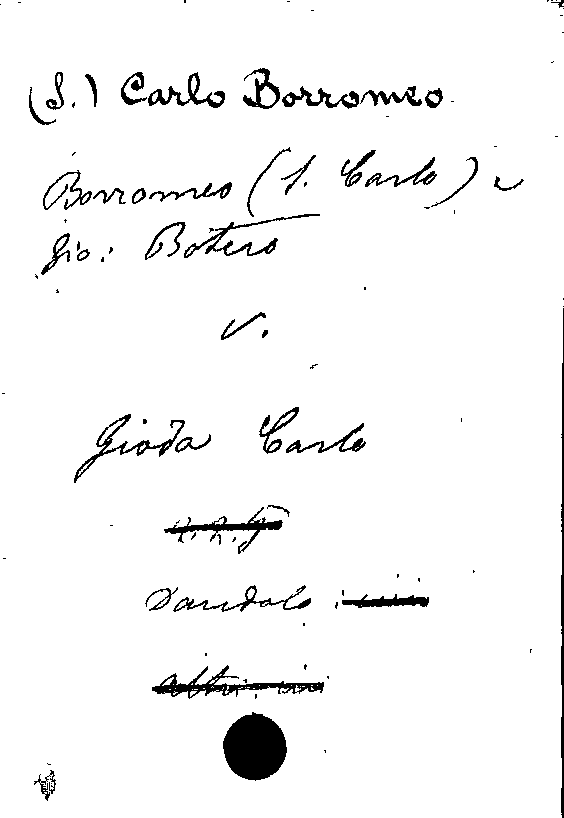 (S.) Carlo Borromeo
Borromeo (S. Carlo) e
Gio: Botero
v.
Gioda Carlo
Dandolo